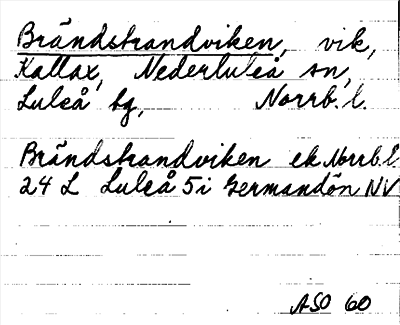 Brändstrandviken, vik,
Kallax, Nederluleå sn,
Luleå tg, Norrb. l.
Brändstrandviken ek Norrb. l
24 L Luleå 5i Germandön NV
ASO 60